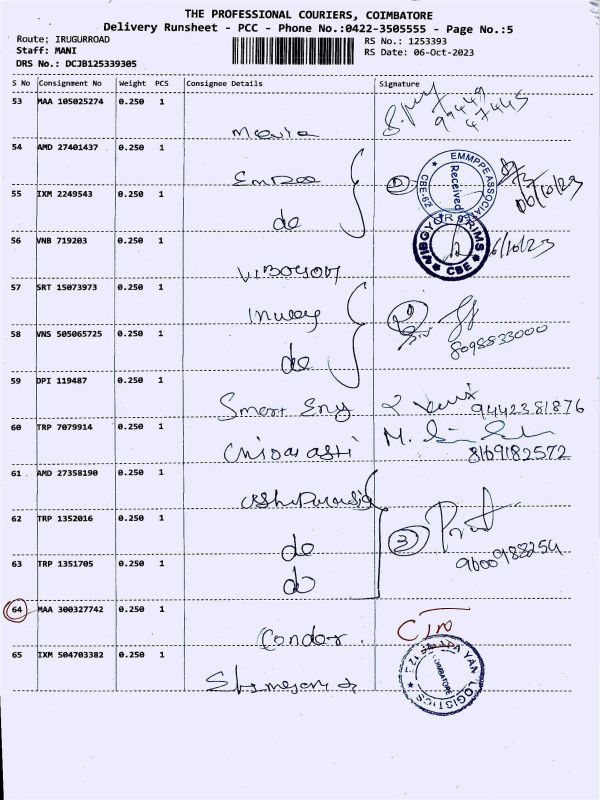 THE PROFESSIONAL COURIERS, COIMBATORE
Delivery Runsheet - PCC - Phone No.:0422-3505555 - Page No.:5
Route: IRUGURROAD
RS No.: 1253393
Staff: MANI
RS Date: 06-Oct-2023
DRS No.: DCJB125339305
S No Consignment No Weight PCS Consignee Details Signature
53 MAA 105025274 0.250 1
54 AMD 27401437 0.250 1
EMMPPE ASSOCIA
Received
CBE-62
06/10/23
55 IXM 2249543 0.250 1
do
56 VNB 719203 0.250 1
CBE
6/10/23
57 SRT 15073973 0.250 1
58 VNS 505065725 0.250 1
8098533000
do
59 DPI 119487 0.250 1
Smart Eng 9442381876
60 TRP 7079914 0.250 1
M.
8169182572
61 AMD 27358190 0.250 1
62 TRP 1352016 0.250 1
3
do
9600988254
63 TRP 1351705 0.250 1
do
64 MAA 300327742 0.250 1
Condor.
65 IXM 504703382 0.250 1
YAN LOGISTICS
COIMBATORE